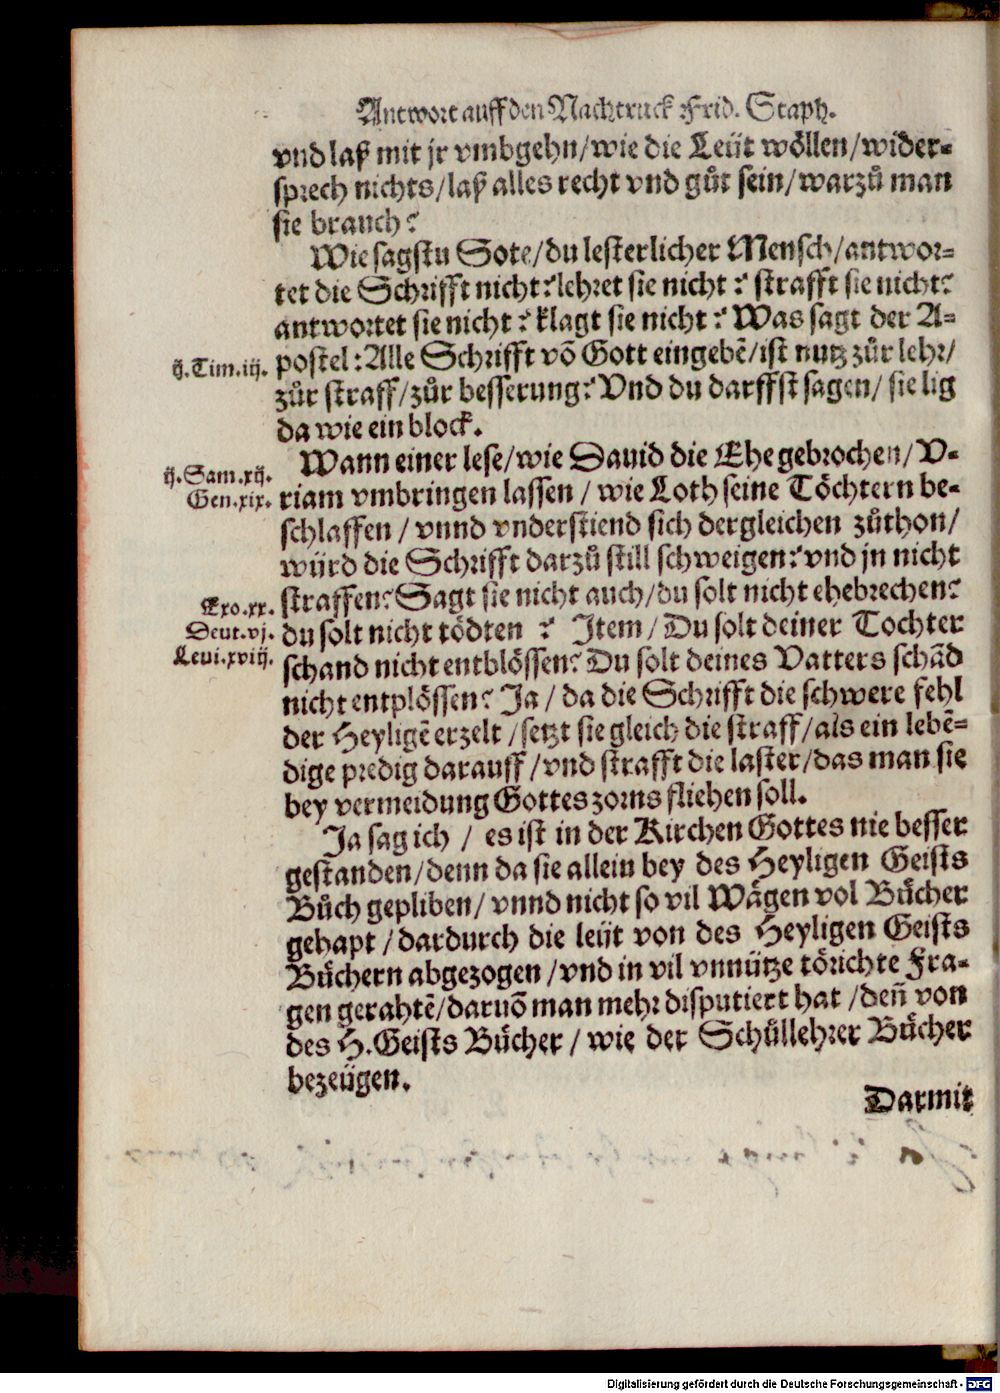 Antwort auff den Nachtruck Frid. Staph.
vnd laß mit jr vmbgehn/wie die Leüt wöllen/wider-
sprech nichts/laß alles recht vnd gůt sein/warzů man
sie brauch?
Wie sagstu Sote/du lesterlicher Mensch/antwor-
tet die Schrifft nicht? lehret sie nicht? strafft sie nicht?
antwortet sie nicht? klagt sie nicht? Was sagt der A-
ij.Tim.iij. postel: Alle Schrifft vō Gott eingebē/ist nutz zůr lehr/
zůr straff/zůr besserung? Vnd du darffst sagen/ sie lig
da wie ein block.
ij.Sam.xij. Wann einer lese/wie Dauid die Ehe gebrochen/V-
Gen.xix. riam vmbringen lassen/ wie Loth seine Töchtern be-
schlaffen/ vnnd vnderstiend sich dergleichen zůthon/
würd die Schrifft darzů still schweigen? vnd jn nicht
Exo.xx. straffen? Sagt sie nicht auch/du solt nicht ehebrechen?
Deut.vj. du solt nicht tödten? Item/ Du solt deiner Tochter
Leui.xviij. schand nicht entblössen? Du solt deines Vatters schād
nicht entplössen? Ja/ da die Schrifft die schwere fehl
der Heyligē erzelt/setzt sie gleich die straff/als ein lebē-
dige predig darauff/vnd strafft die laster/das man sie
bey vermeidung Gottes zorns fliehen soll.
Ja sag ich/ es ist in der Kirchen Gottes nie besser
gestanden/denn da sie allein bey des Heyligen Geists
Bůch gepliben/ vnnd nicht so vil Wägen vol Bücher
gehapt/dardurch die leüt von des Heyligen Geists
Büchern abgezogen/vnd in vil vnnütze törichte Fra-
gen gerahtē/daruō man mehr disputiert hat/deñ von
des H.Geists Bücher/ wie der Schůllehrer Bücher
bezeügen.
Darmit
Digitalisierung gefördert durch die Deutsche Forschungsgemeinschaft - DFG